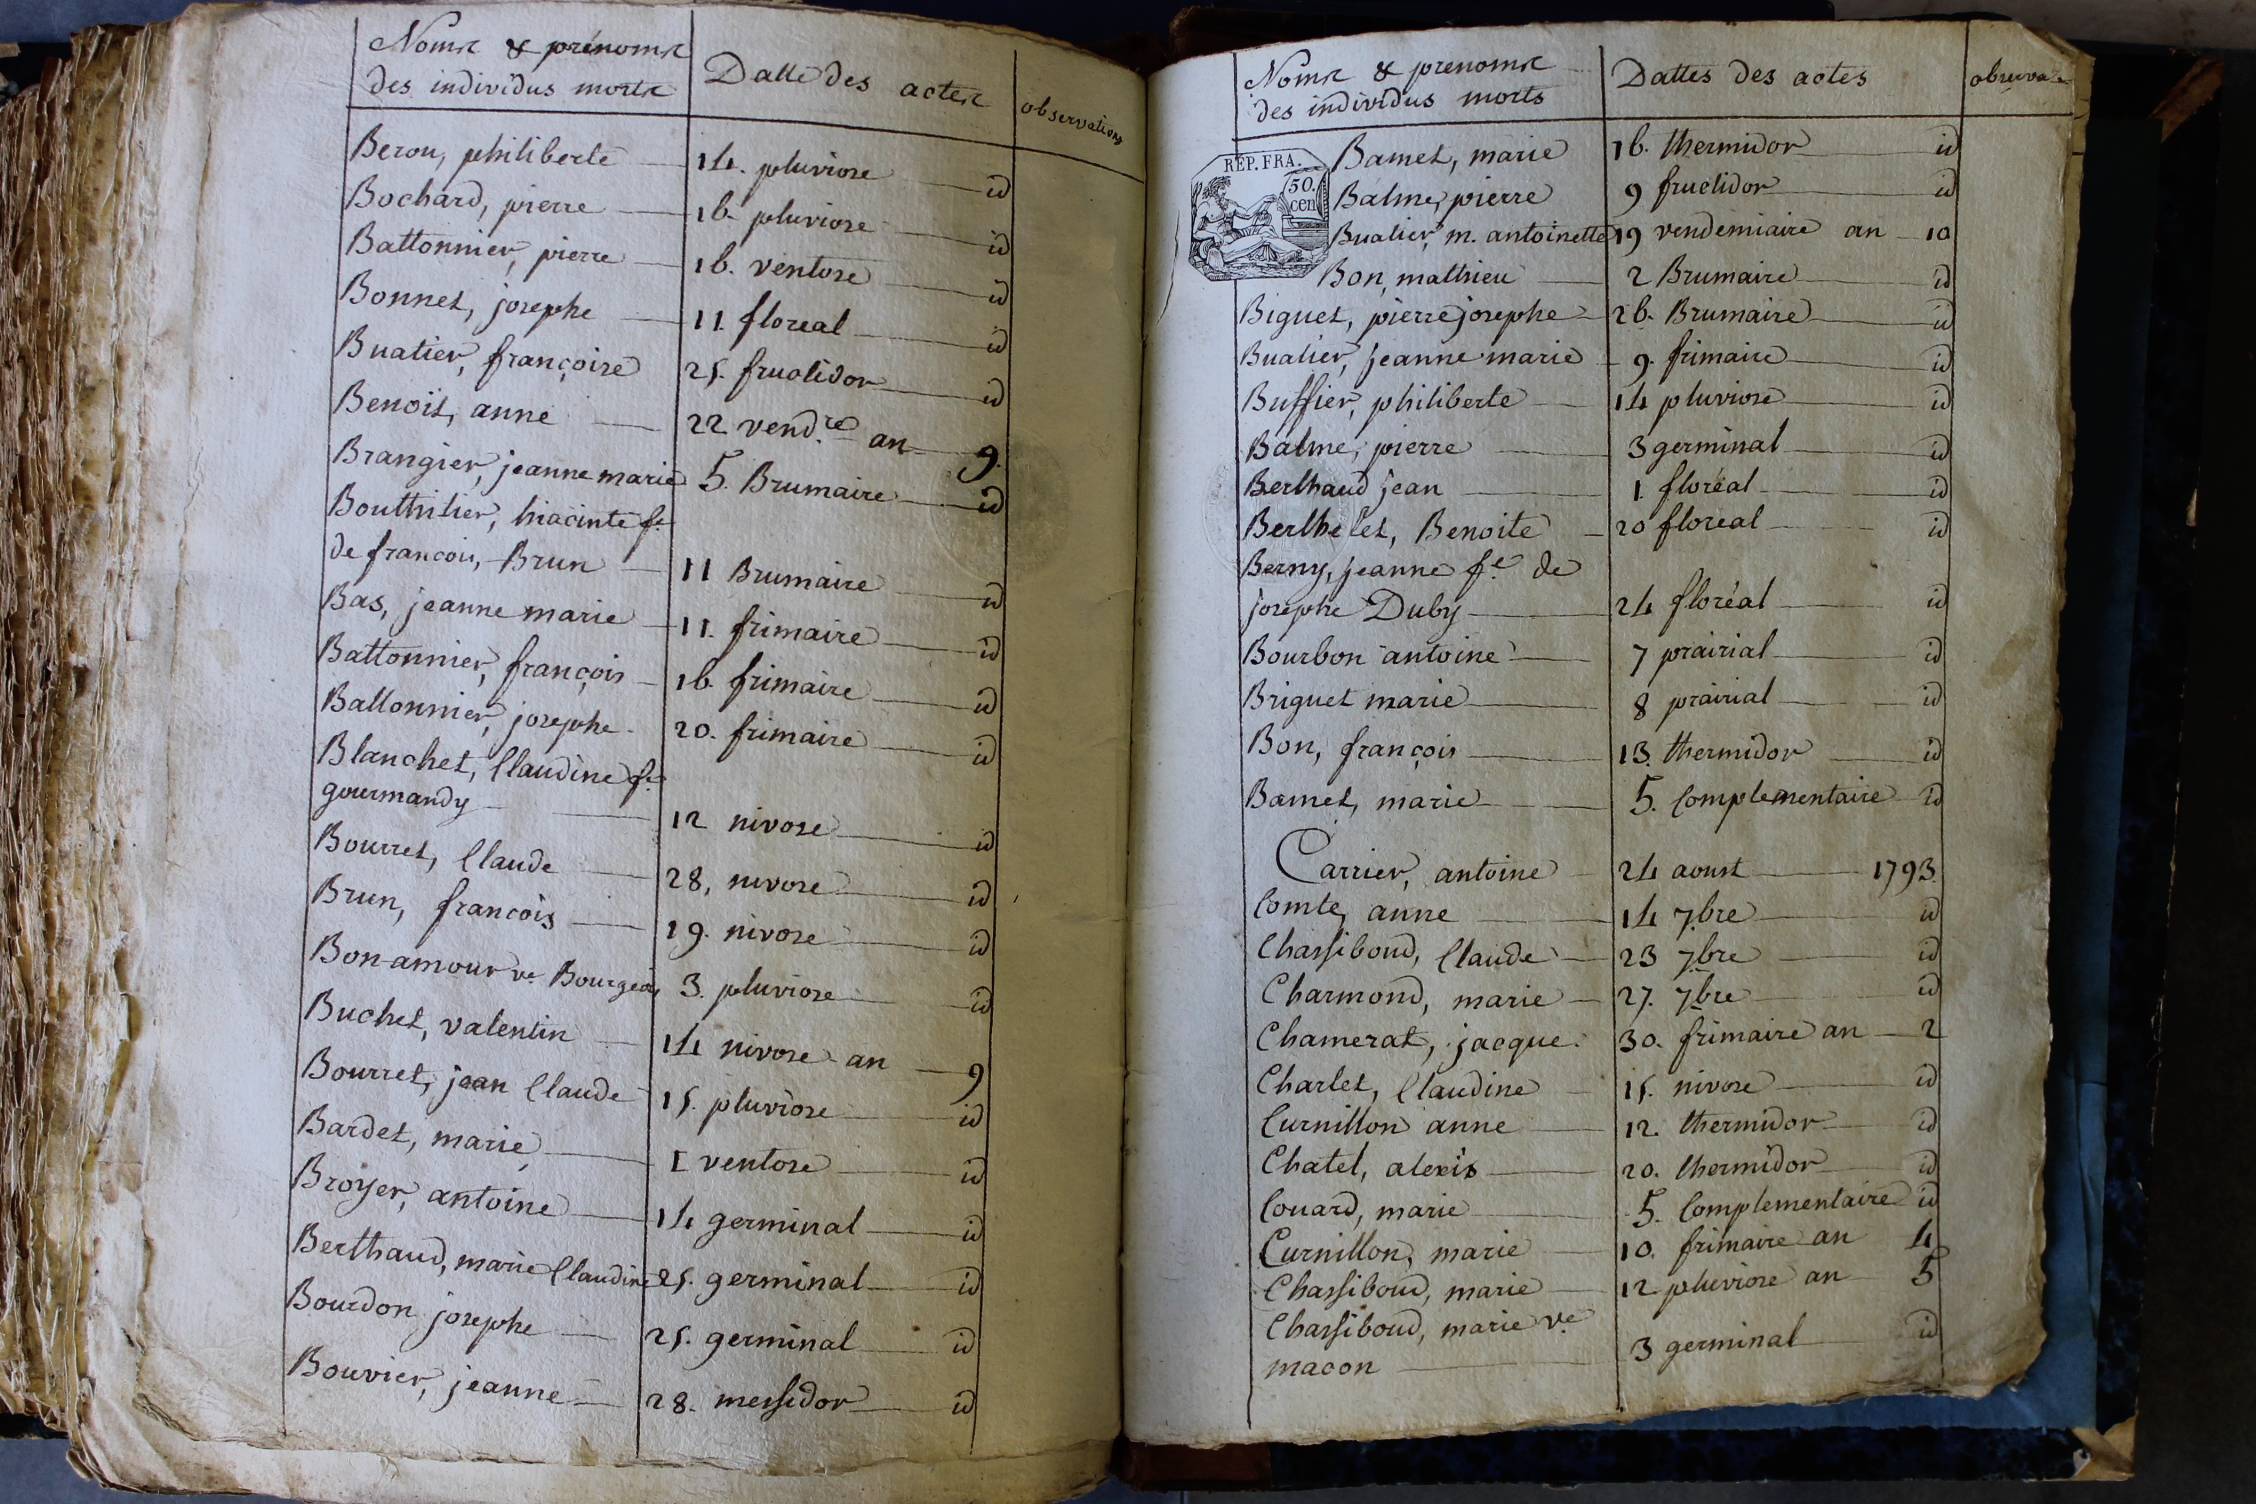 Noms & prénoms
des individus morts
Datte des actes
observations
Berou, philiberte 14. pluviose id
Bochard, pierre 16 pluviose id
Battonnier, pierre 16. ventose id
Bonnet, josephe 11. floreal id
Buatier, françoise 25. fructidor id
Benoit, anne 22 vend.re an 9.
Brangier, jeanne marie 5. Brumaire id
Bouthilier, hiacinte fe
de francois, Brun 11 Brumaire id
Bas, jeanne marie 11. frimaire id
Battonnier, françois 16 frimaire id
Battonnier, josephe 20. frimaire id
Blanchet, Claudine fe
gourmandy 12 nivose id
Bourret, Claude 28, nivose id
Brun, francois 19. nivose id
Bon-amour ve Bourgeois 3. pluviose id
Buchet, valentin 14 nivose an 9
Bourret, jean Claude 15. pluviose id
Bardet, marie 1 ventose id
Broyer, antoine 14 germinal id
Berthaud, marie Claudine 25. germinal id
Bourdon josephe 25. germinal id
Bouvier, jeanne 28. messidor id
Noms & prenoms
des individus morts
Dattes des actes
REP. FRA.
50.
cen
Bamet, marie 16. thermidor id
Balme, pierre 9 fructidor id
Buatier, m. antoinette 19 vendemiaire an 10
Bon, mathieu 2 Brumaire id
Biguet, pierre josephe 26. Brumaire id
Buatier, jeanne marie 9. frimaire id
Buffier, philiberte 14 pluviose id
Balme, pierre 3 germinal id
Berthaud jean 1. floréal id
Berthelet, Benoite 20 floreal id
Berny, jeanne fe de
josephe Duby 24 floréal id
Bourbon antoine 7 prairial id
Briguet marie 8 prairial id
Bon, françois 13. thermidor id
Bamet, marie 5. Complementaire id
Carrier, antoine 24 aoust 1793.
Comte, anne 14 7bre id
Chassiboud, Claude 23 7bre id
Charmond, marie 27. 7bre id
Chamerat, jacque. 30. frimaire an 2
Charlet, Claudine 15. nivose id
Curnillon anne 12. thermidor id
Chatel, alexis 20. thermidor id
Couard, marie 5. Complementaire id
Curnillon, marie 10. frimaire an 4
Chassiboud, marie 12 pluviose an 5
Chassiboud, marie ve
macon 3 germinal id